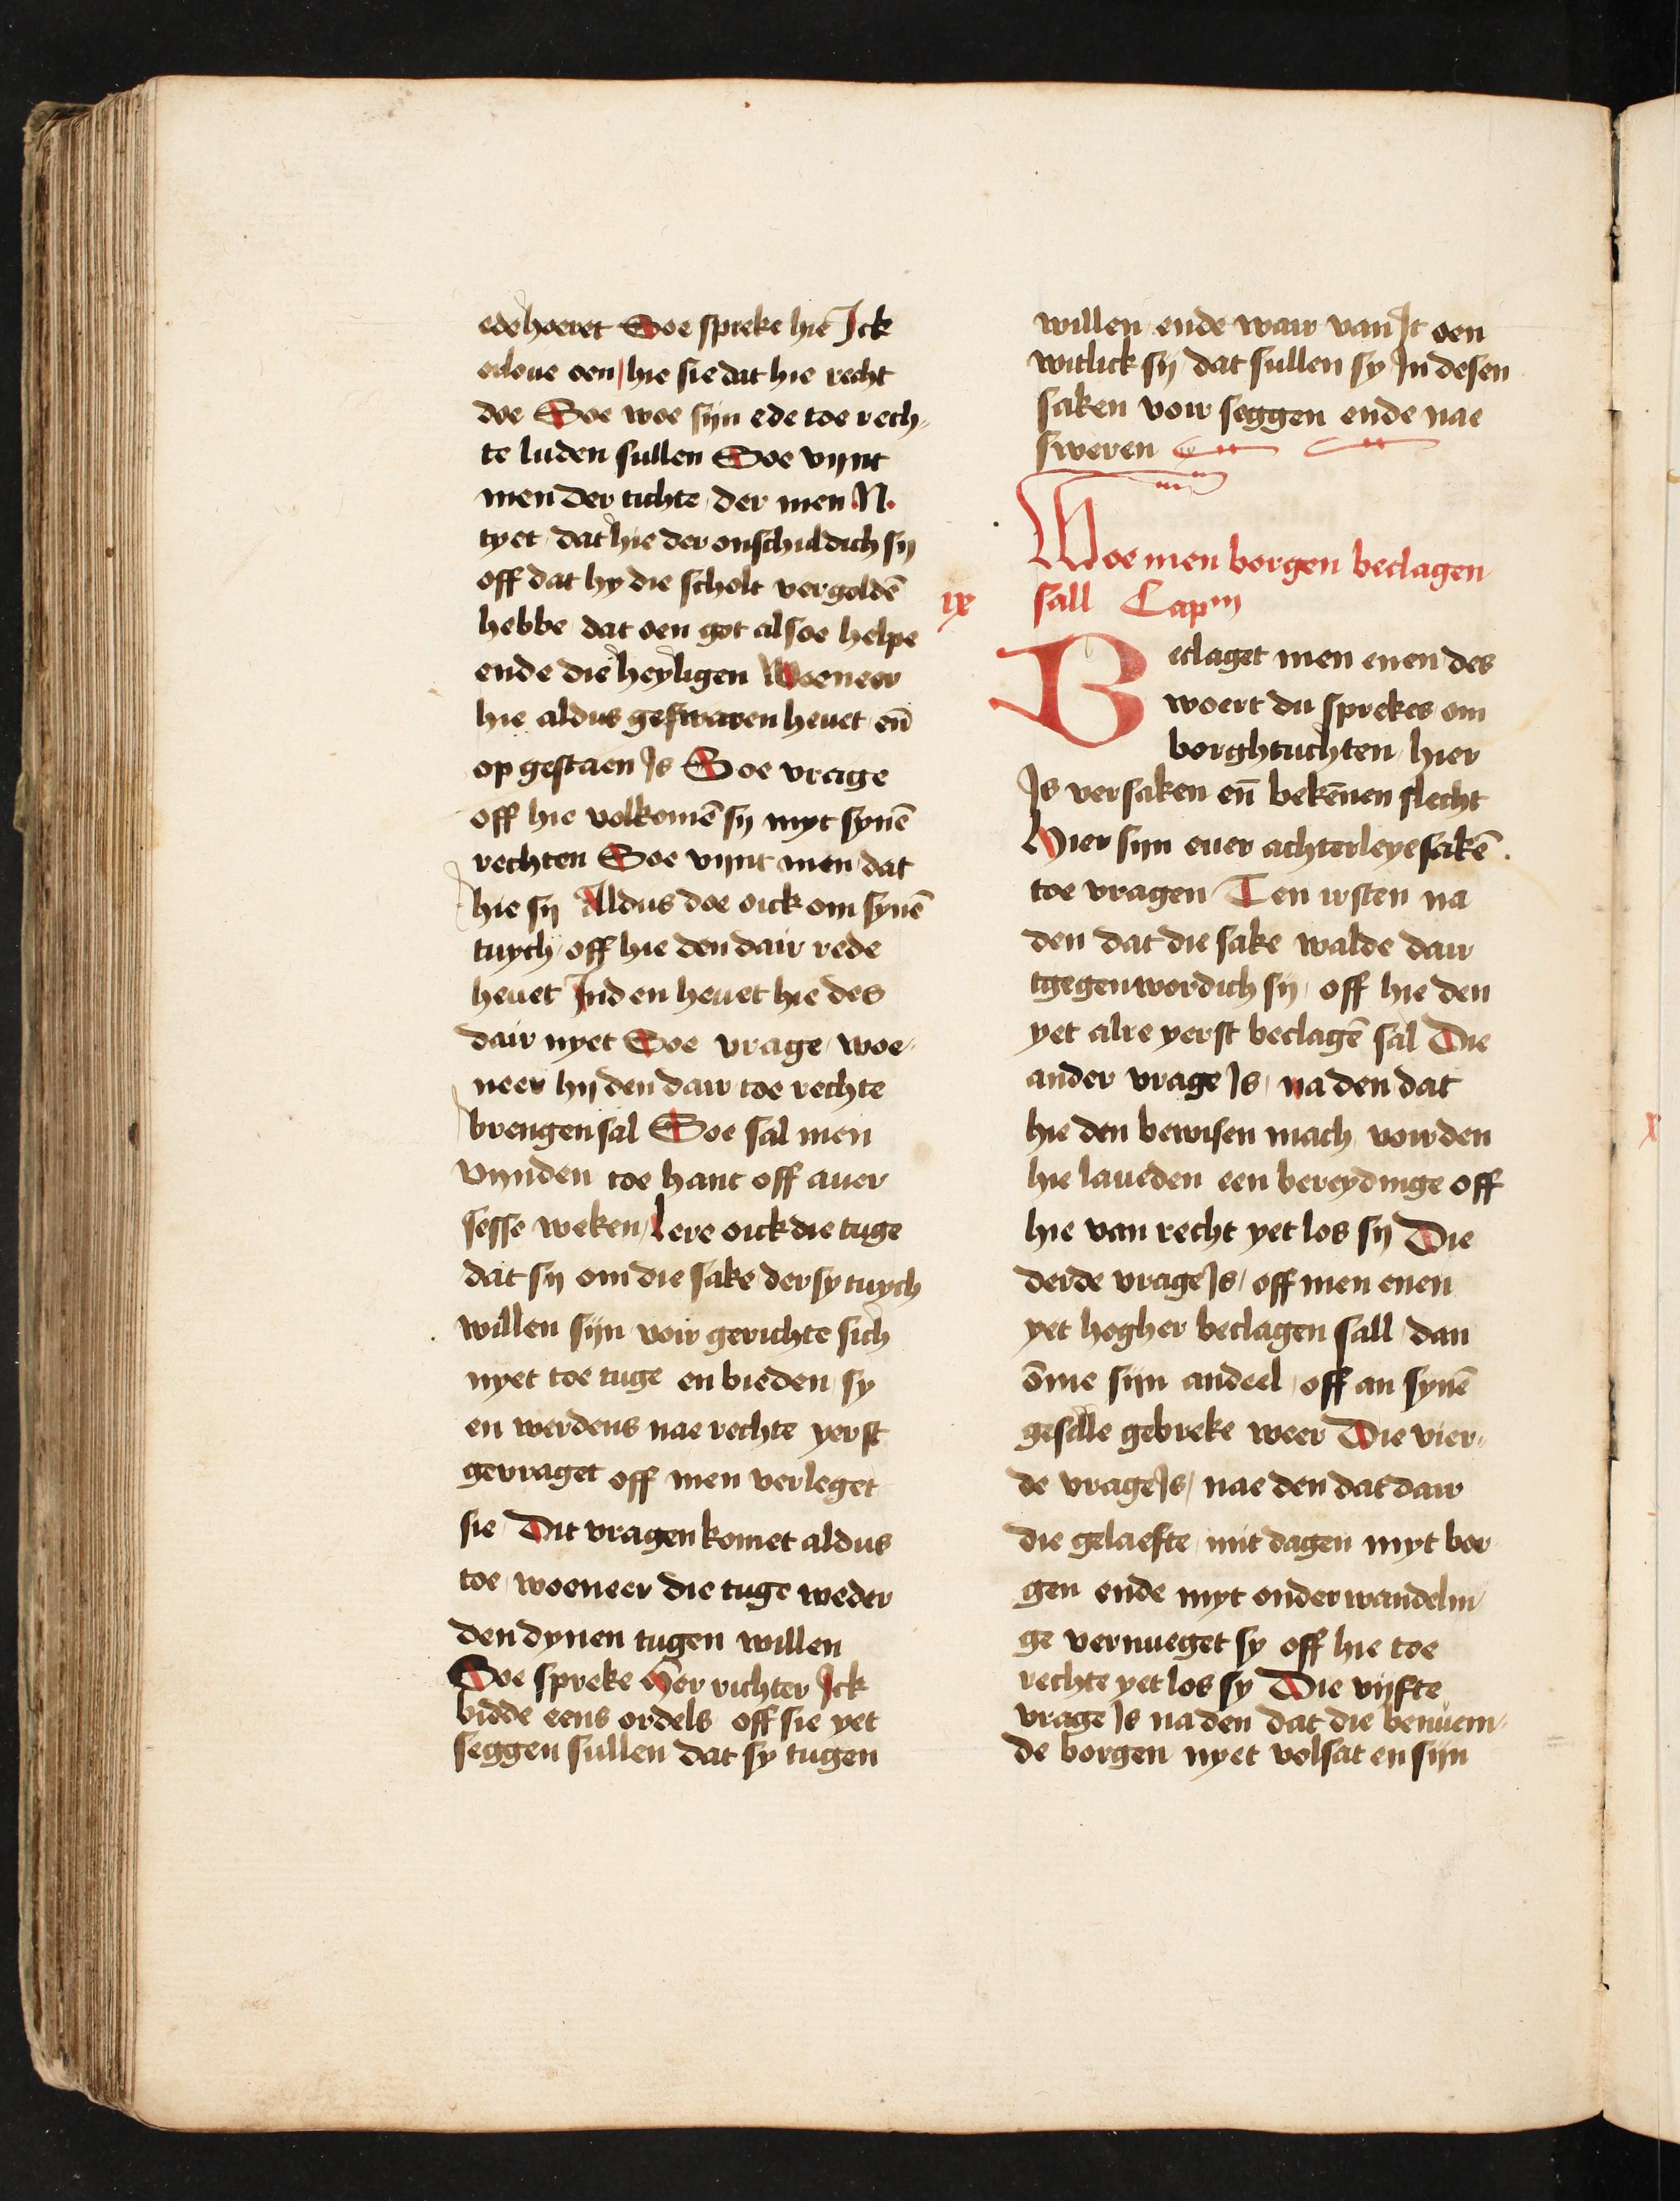 edehoeret Soe spreke hie Jck
orloue oen / hie sie dat hie recht
doe Soe woe sijn ede toe rech„
te luden sullen Soe vijnt
men der tichte der men .N.
tyet dat hie der onschuldich sy
off dat hy die scholt vergoldē
hebbe dat oen got alsoe helpe
ende die heyligen Woeneer
hie aldus geswaren heuet eñ
op gestaen Js Soe vrage
off hie volkomē sy myt synē
rechten Soe vijnt men dat
hie sy Aldus doe oick om synē
tuych off hie den dair rede
heuet Jnd en heuet hie des
dair nyet Soe vrage woe„
neer hij den dair toe rechte
brengen sal Soe sal men
vijnden toe hant off auer
sesse weken / lere oick die tuge
dat sy om die sake der sy tuych
willen sijn voir gerichte sich
nyet toe tuge en bieden sy
en werdens nae rechte yerst
gevraget off men verleget
sie Dit vragen komet aldus
toe woeneer die tuge weder
den dynen tugen willen
Soe spreke Her richter Jck
bidde eens ordels off sie yet
seggen sullen dat sy tugen
willen ende wair van Jt oen
witlick sij dat sullen sy Jn desen
saken voir seggen ende nae
sweren
Woe men borgen beclagen
ix sall Capm
Beclaget men enen des
woert du sprekes om
borghtuchten hier
Js versaken eñ bekēnen slecht
Hier sijn euer achterleye sakē
toe vragen Ten irsten na
den dat die sake walde dair
tgegenwordich sij off hie den
yet alre yerst beclagē sal Die
ander vrage Js na den dat
hie den bewisen mach voir den
hie laueden een bereydinge off
hie van recht yet los sij Die
derde vrage Js / off men enen
yet hogher beclagen sall dan
ōme sijn andeel off an synē
geselle gebreke weer Die vier„
de vrage Js / nae den dat dair
die gelaefte mit dagen myt bor
gen ende myt onderwandelin„
ge vernueget sy off hie toe
rechte yet los sy Die vijfte
vrage Js na den dat die benuem„
de borgen nyet volsat en sijn
x